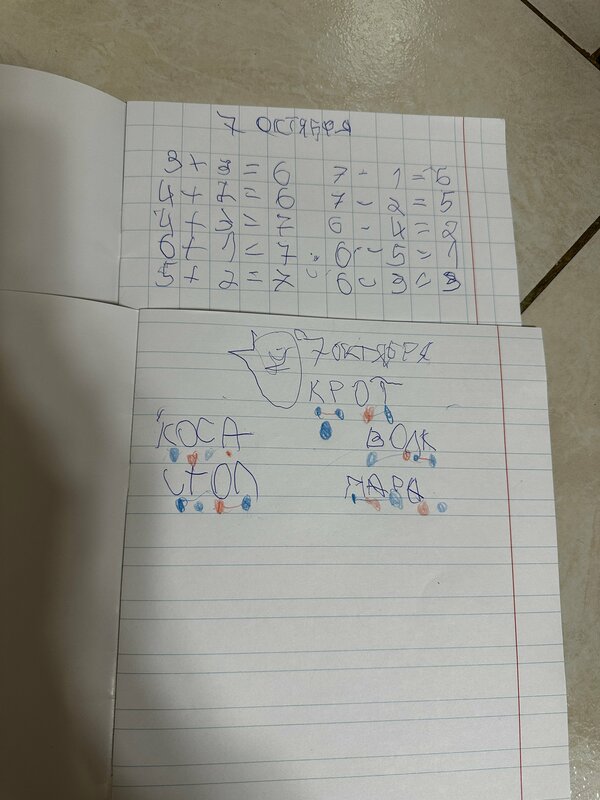 7 ОКТЯБРЯ
3 + 3 = 6 7 - 1 = 6
4 + 2 = 6 7 - 2 = 5
4 + 3 = 7 6 - 4 = 2
6 + 1 = 7 6 - 5 = 1
5 + 2 = 7 6 - 3 = 3
7 ОКТЯБРЯ
КРОТ
КОСА ВОЛК
СТОЛ